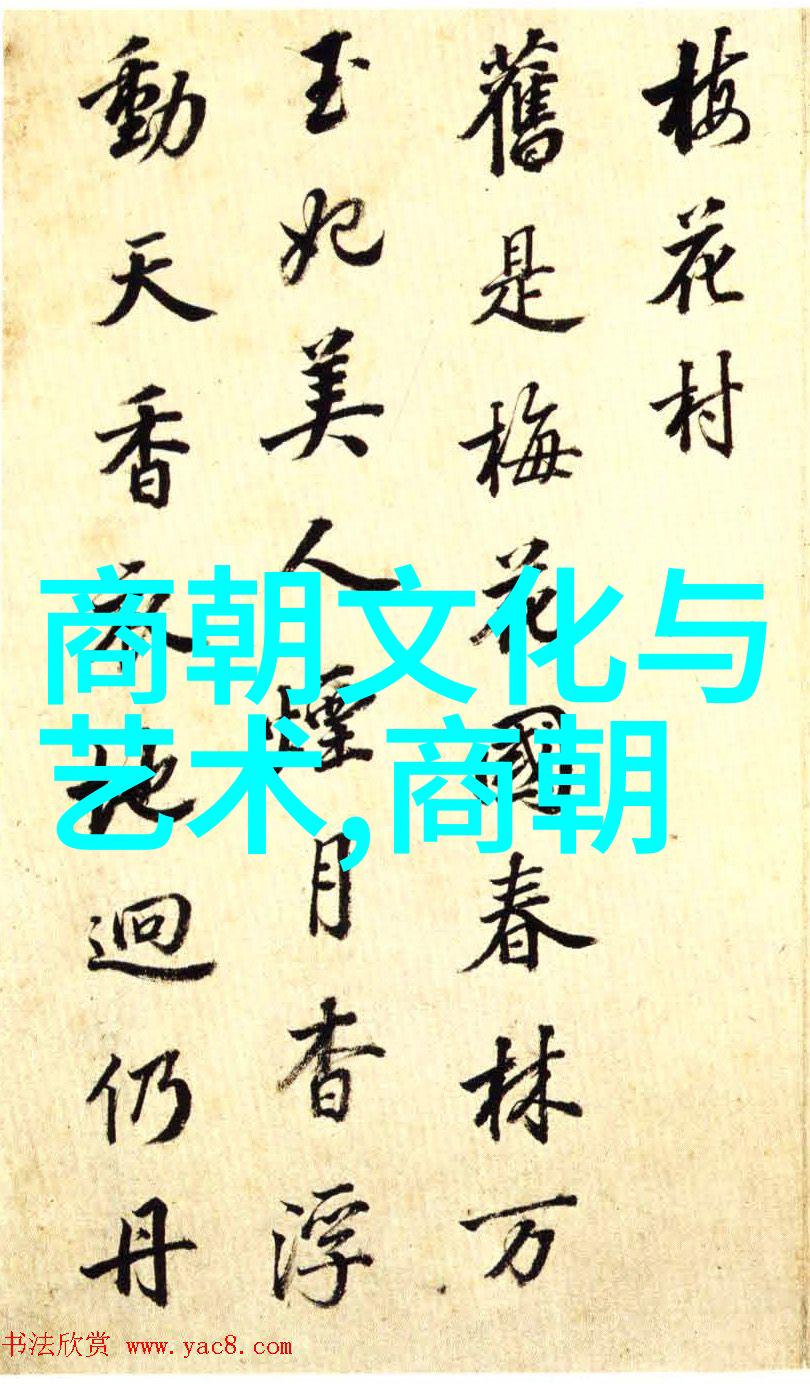 梅花村
舊是梅花國春林万
玉妃美人煙月杳浮
動天香地迥仍丹
商朝文化与
艺术,商朝
书法欣赏 www.yac8.com